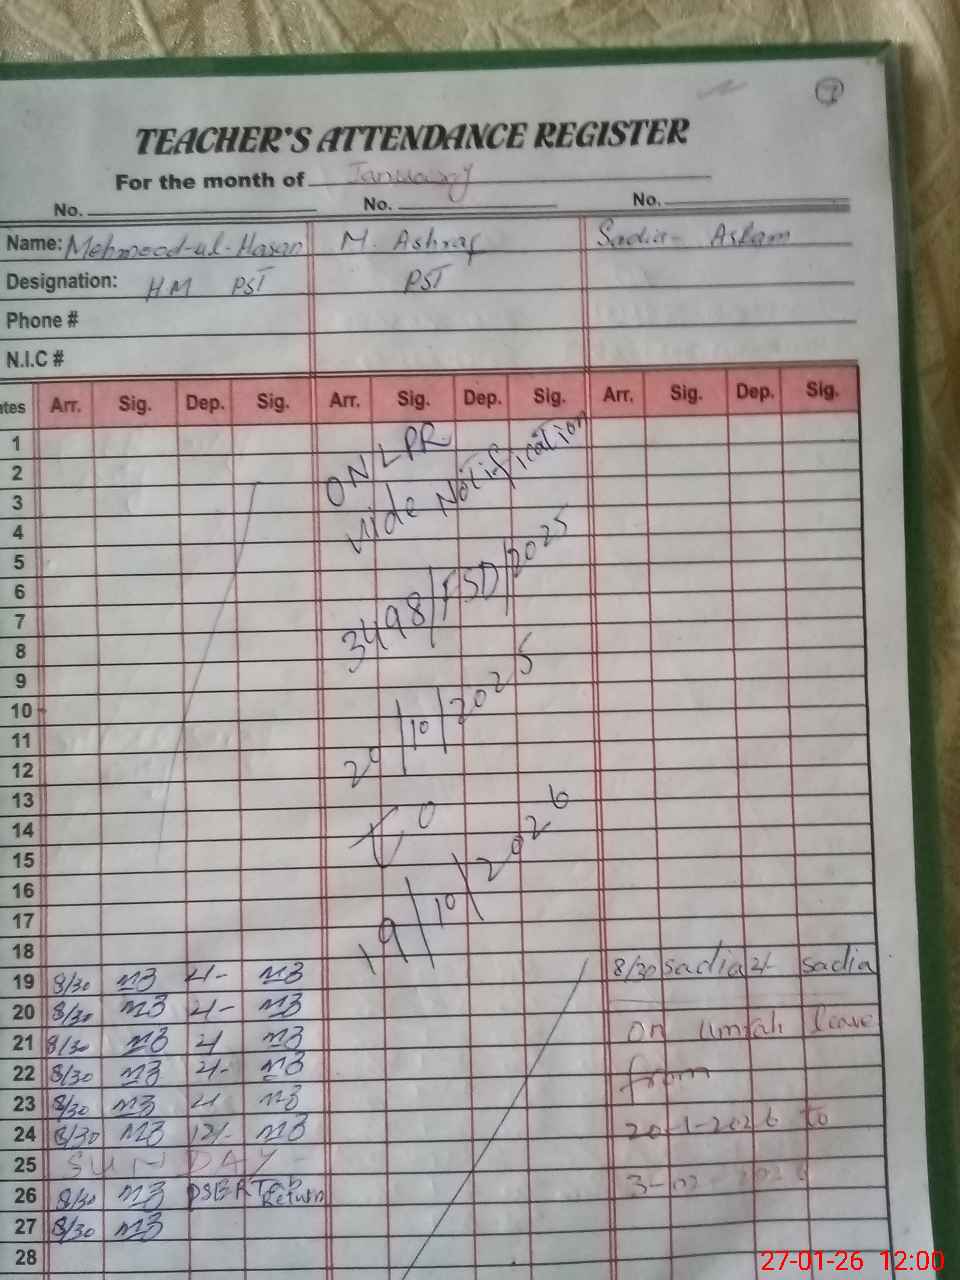 7
TEACHER'S ATTENDANCE REGISTER
For the month of January
No. No. No.
Name: Mehmood-ul-Hasan M. Ashraf Sadia Aslam
Designation: HM PST PST
Phone #
N.I.C #
ates Arr. Sig. Dep. Sig. Arr. Sig. Dep. Sig. Arr. Sig. Dep. Sig.
1
2
3
4
5
6
7
8
9
10
11
12
13
14
15
16
17
18
ON LPR
vide Notification
3498/FSD/2025
/10/2025
To
19/10/2026
19 8/30 4- 8/30 sadia 2/- sadia
20 8/30 4-
21 8/30 4 on Umrah leave
22 8/30 4-
23 8/30 4 from
24 8/30 12/- 20-1-2026 to
25 SUNDAY
26 8/30 PSER Tab Return 3-02-2026
27 8/30
28
27-01-26 12:00